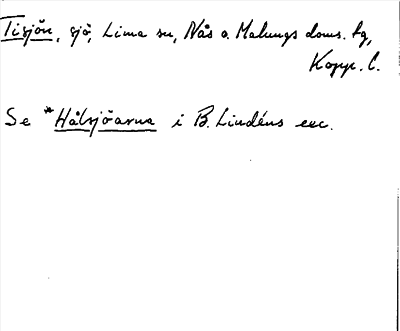 Tisjön, sjö, Lima sn, Nås o. Malungs doms. hg,
Kopp. l.
Se *Hålsjöarna i B. Lindéns exc.